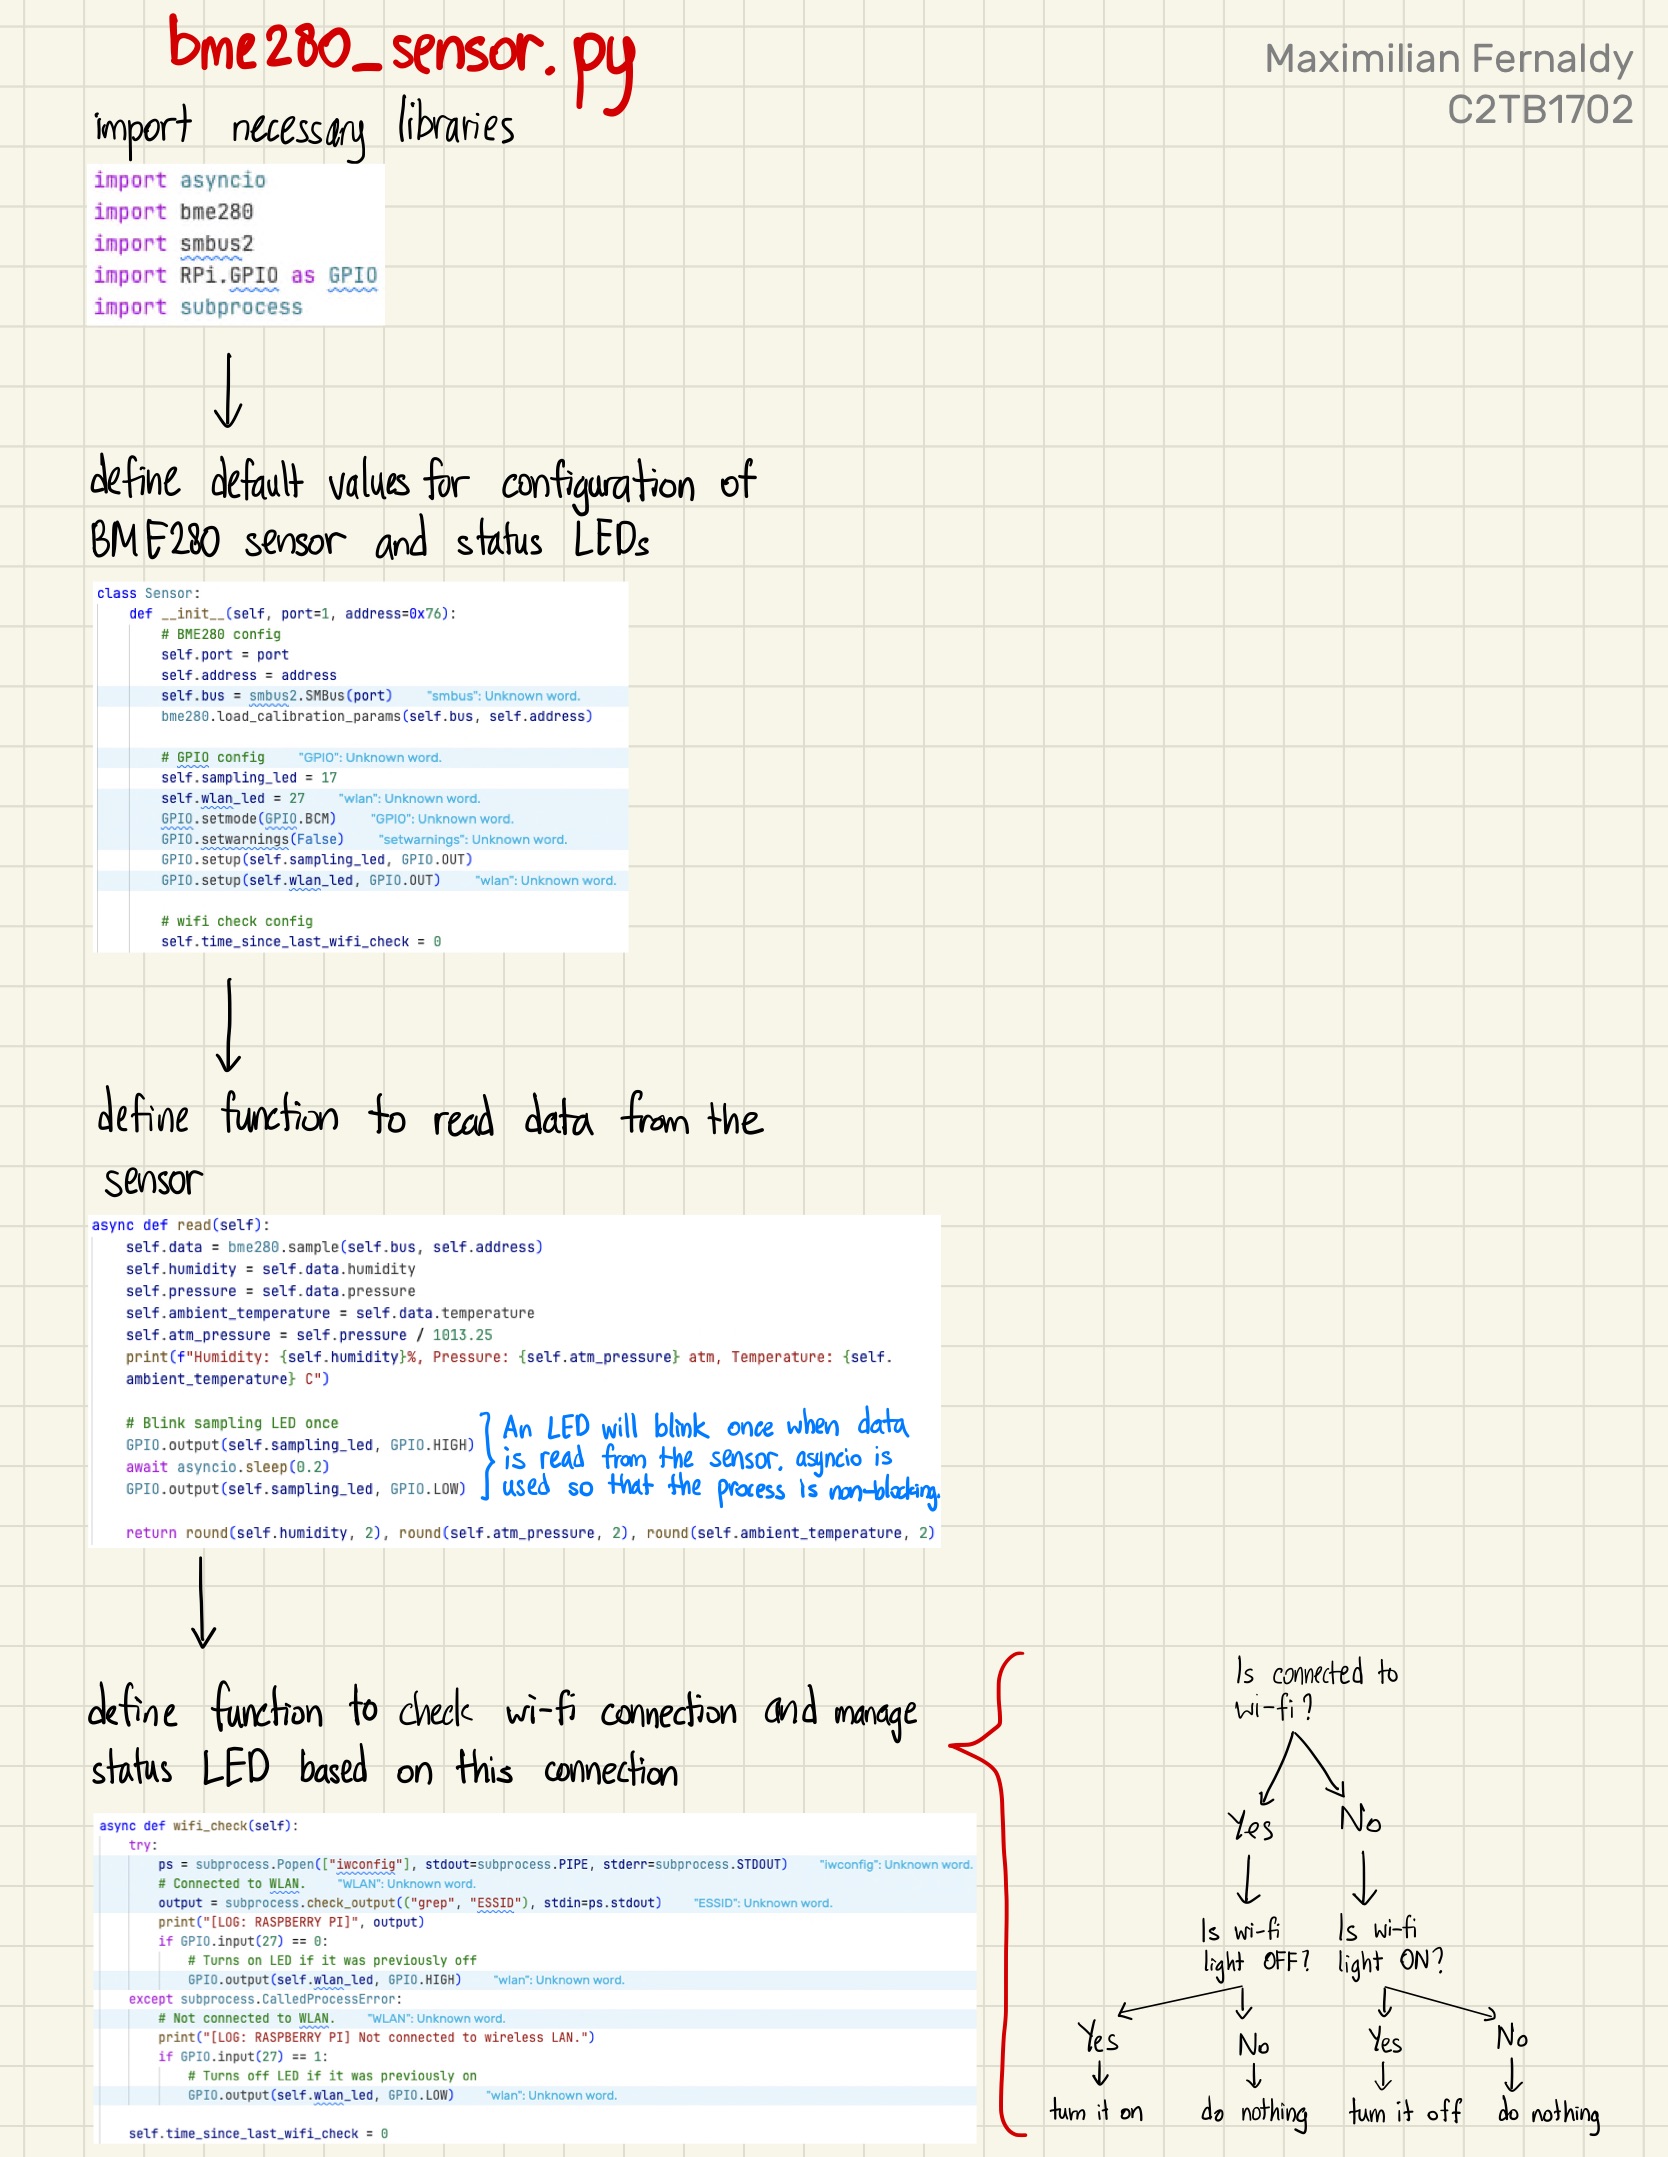 bme280_sensor.py
Maximilian Fernaldy
C2TB1702
import necessary libraries
import asyncio
import bme280
import smbus2
import RPi.GPIO as GPIO
import subprocess
define default values for configuration of
BME280 sensor and status LEDs
class Sensor:
def __init__(self, port=1, address=0x76):
# BME280 config
self.port = port
self.address = address
self.bus = smbus2.SMBus(port) "smbus": Unknown word.
bme280.load_calibration_params(self.bus, self.address)
# GPIO config "GPIO": Unknown word.
self.sampling_led = 17
self.wlan_led = 27 "wlan": Unknown word.
GPIO.setmode(GPIO.BCM) "GPIO": Unknown word.
GPIO.setwarnings(False) "setwarnings": Unknown word.
GPIO.setup(self.sampling_led, GPIO.OUT)
GPIO.setup(self.wlan_led, GPIO.OUT) "wlan": Unknown word.
# wifi check config
self.time_since_last_wifi_check = 0
define function to read data from the
sensor
async def read(self):
self.data = bme280.sample(self.bus, self.address)
self.humidity = self.data.humidity
self.pressure = self.data.pressure
self.ambient_temperature = self.data.temperature
self.atm_pressure = self.pressure / 1013.25
print(f"Humidity: {self.humidity}%, Pressure: {self.atm_pressure} atm, Temperature: {self.
ambient_temperature} C")
# Blink sampling LED once
GPIO.output(self.sampling_led, GPIO.HIGH)
await asyncio.sleep(0.2)
GPIO.output(self.sampling_led, GPIO.LOW)
An LED will blink once when data
is read from the sensor. asyncio is
used so that the process is non-blocking.
return round(self.humidity, 2), round(self.atm_pressure, 2), round(self.ambient_temperature, 2)
define function to check wi-fi connection and manage
status LED based on this connection
async def wifi_check(self):
try:
ps = subprocess.Popen(["iwconfig"], stdout=subprocess.PIPE, stderr=subprocess.STDOUT) "iwconfig": Unknown word.
# Connected to WLAN. "WLAN": Unknown word.
output = subprocess.check_output(("grep", "ESSID"), stdin=ps.stdout) "ESSID": Unknown word.
print("[LOG: RASPBERRY PI]", output)
if GPIO.input(27) == 0:
# Turns on LED if it was previously off
GPIO.output(self.wlan_led, GPIO.HIGH) "wlan": Unknown word.
except subprocess.CalledProcessError:
# Not connected to WLAN. "WLAN": Unknown word.
print("[LOG: RASPBERRY PI] Not connected to wireless LAN.")
if GPIO.input(27) == 1:
# Turns off LED if it was previously on
GPIO.output(self.wlan_led, GPIO.LOW) "wlan": Unknown word.
self.time_since_last_wifi_check = 0
Is connected to
wi-fi?
Yes No
Is wi-fi
light OFF?
Is wi-fi
light ON?
Yes No Yes No
turn it on do nothing turn it off do nothing